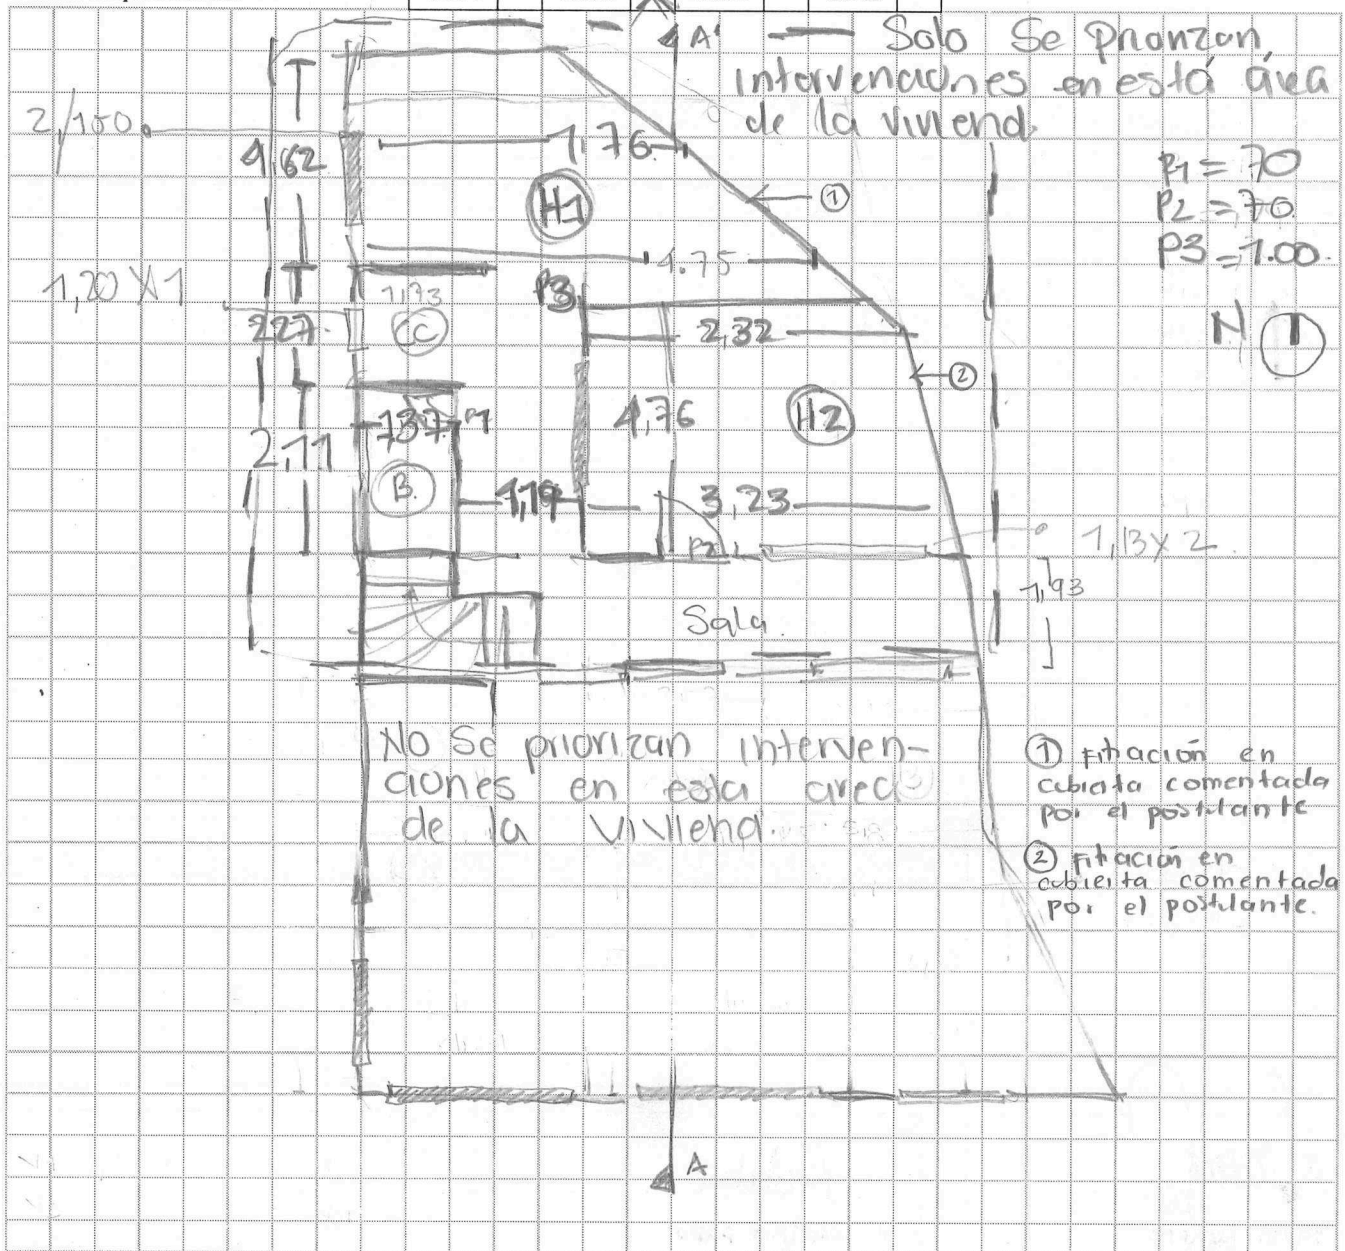 A'
Solo Se Prionzan,
intervenciones en está área
de la viviend.
2/100
4,62
1.76
P1 = 70
P2 = 70
P3 = 1.00
H1
①
4.75
1,20 X 1
1,93
P3
227
CC
2,32
N
②
4,76
H2
137
P1
2,11
B.
1,19
3,23
P2
1,13 x 2
1,93
Sala
No Se priorizan interven-
ciones en esta area
de la Viviend.
① Fitración en
cubierta comentada
por el postulante
② Fitración en
cubierta comentada
por el postulante.
A